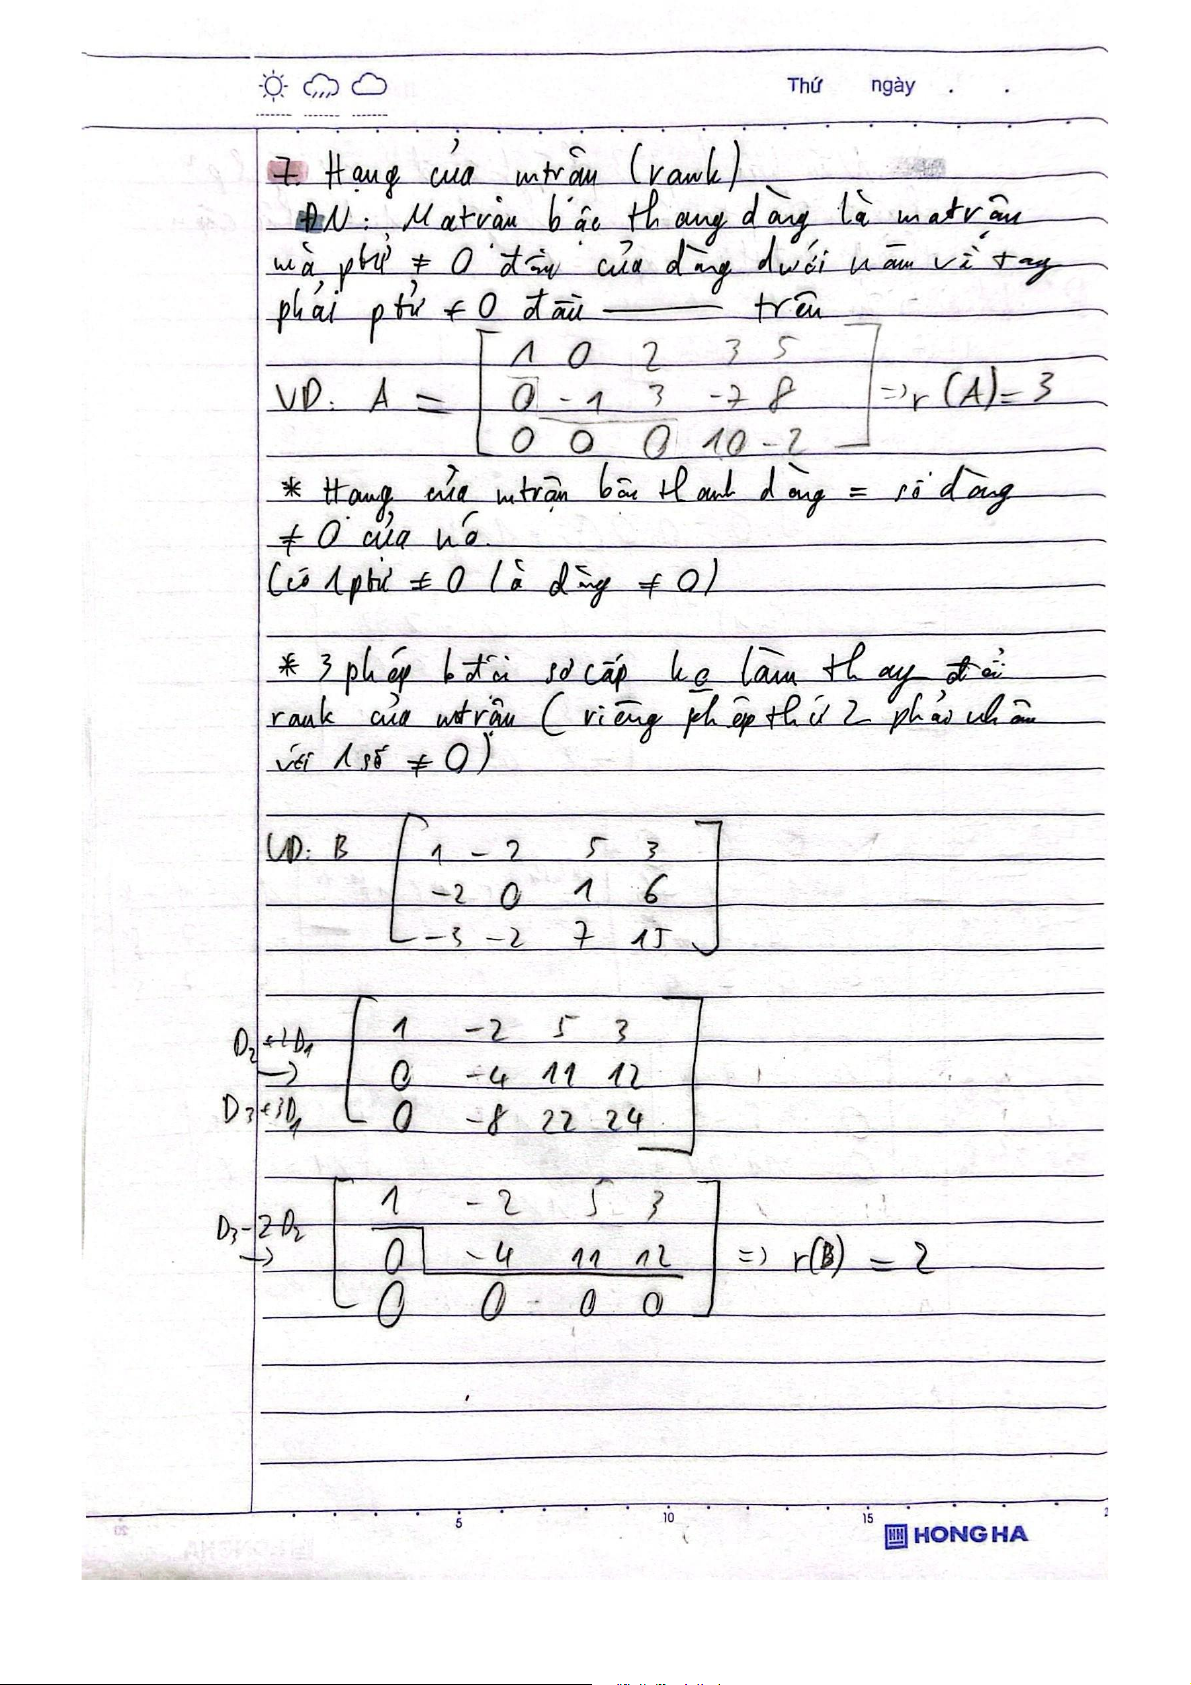 Thứ ngày . .
7. Hạng của mtrận (rank)
ĐN: Ma trận bậc thang dòng là ma trận
mà ptử ≠ 0 đầu của dòng dưới nằm về tay
phải ptử ≠ 0 đầu ——— trên
1 0 2 3 5
VD: A = 0 -1 3 -7 8 => r(A) = 3
0 0 0 10 -2
* Hạng của mtrận bậc thanh dòng = số dòng
≠ 0 của nó.
(có 1 ptử ≠ 0 là dòng ≠ 0)
* 3 phép bđổi sơ cấp ko làm thay đổi
rank của mtrận (riêng phép thứ 2 phải nhân
với 1 số ≠ 0)
VD: B 1 -2 5 3
-2 0 1 6
-3 -2 7 15
1 -2 5 3
D2 + 2D1
→ 0 -4 11 12
D3 + 3D1 0 -8 22 24
1 -2 5 3
D3 - 2D2
→ 0 -4 11 12 => r(B) = 2
0 0 0 0
5 10 15
HONG HA